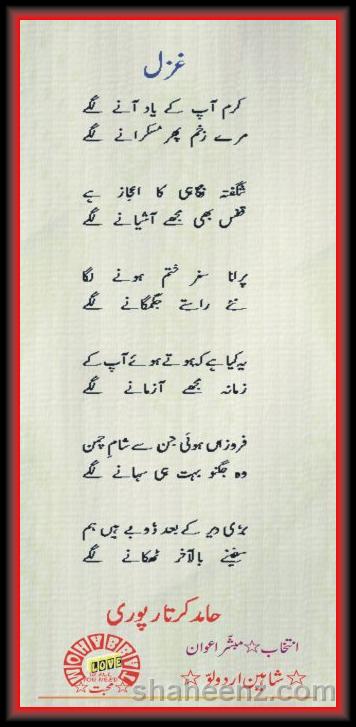 غزل
کرم آپ کے یاد آنے لگے
مرے زخم پھر مسکرانے لگے
شگفتہ نگاہی کا اعجاز ہے
قفس بھی مجھے آشیانے لگے
پرانا سفر ختم ہونے لگا
نئے راستے جگمگانے لگے
یہ کیا ہے کہ ہوتے ہوئے آپ کے
زمانہ مجھے آزمانے لگے
فروزاں ہوئی جن سے شامِ چمن
وہ جگنو بہت ہی سہانے لگے
بڑی دیر کے بعد ڈوبے ہیں ہم
سفینے بالآخر ٹھکانے لگے
حامد کرتارپوری
انتخاب☆مبشر اعوان
☆شاہین اردو لَو☆
LOVE
IS ALL
YOU NEED
☆محبت☆
shaheenz.com